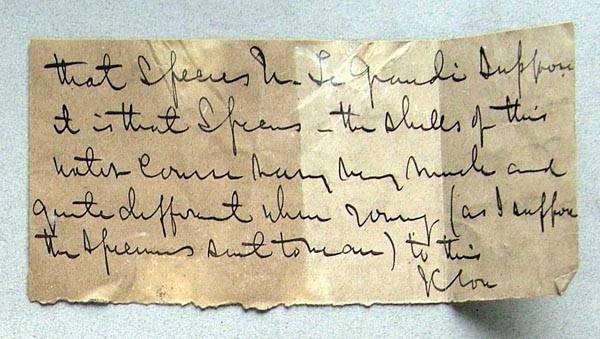 that Species U. Le Grandi Suppose
it is that Species - the shells of this
water Course vary very much and
quite different when young (as I suppose
the specimens sent to me are) to this